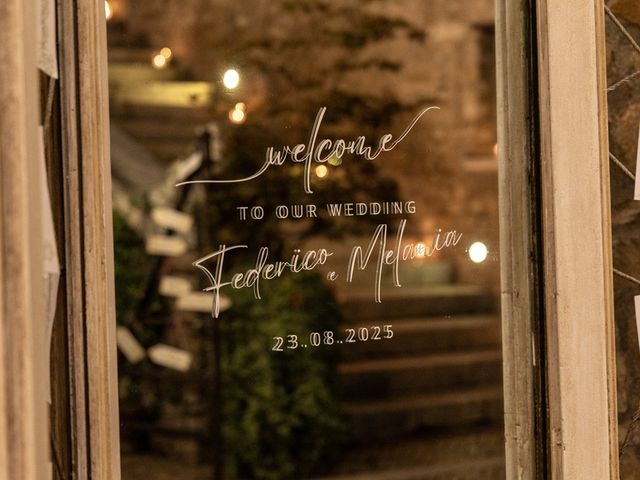 welcome
TO OUR WEDDING
Federico e Melania
23.08.2025